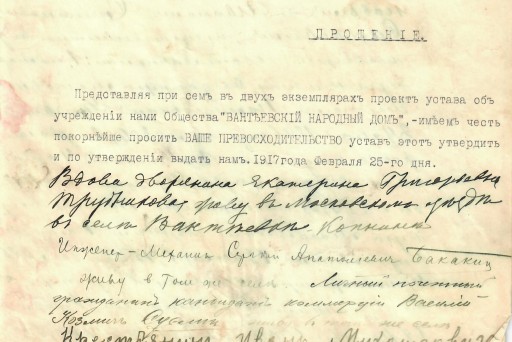 ПРОШЕНІЕ.
Представляя при семъ въ двухъ экземплярахъ проектъ устава объ
учрежденіи нами Общества "ВАНТѢЕВСКІЙ НАРОДНЫЙ ДОМЪ",-имѣемъ честь
покорнѣйше просить ВАШЕ ПРЕВОСХОДИТЕЛЬСТВО уставъ этотъ утвердить
и по утвержденіи выдать намъ. 1917 года Февраля 25-го дня.
Вдова дворянина Екатерина Григорьевна
живу въ Московскомъ уѣздѣ
въ селѣ
Инженер-Механик Сергѣй Анатольевич Бакакин
живу в том же Личный почетный
гражданинъ кандидатъ коммерціи Василій
Козмич
Иванъ